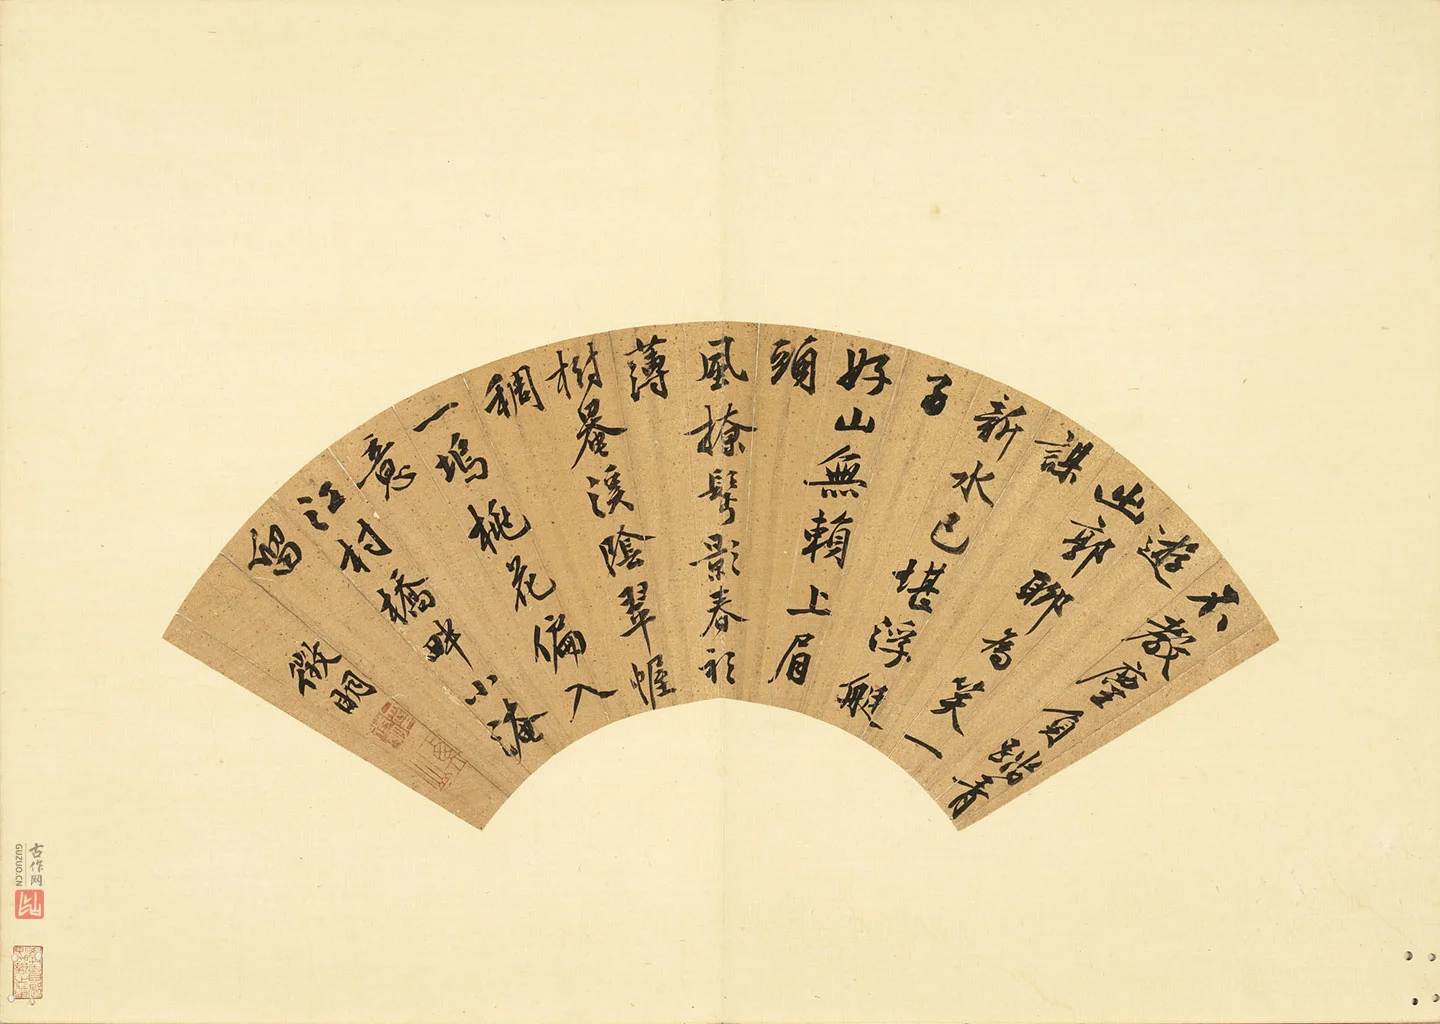 不教塵負踏青
遊
出郭聊為笑一
謀
新水已堪浮艇
子
好山無賴上眉
頭
風撩鬢影春衫
薄
樹罨溪陰翠幄
稠
一塢桃花偏入
意
江村橋畔小淹
留
徵明
古作网
GUZUO.CN